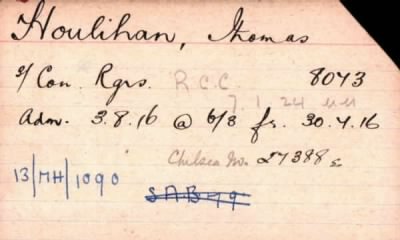 Houlihan, Thomas
5/ Con. Rgrs. R.C.C 8043
7.1.24
Adm. 3.8.16 @ 6/3 fr. 30.4.16
Chelsea No. 27388 c
13/MH/1090 S.A.B 49